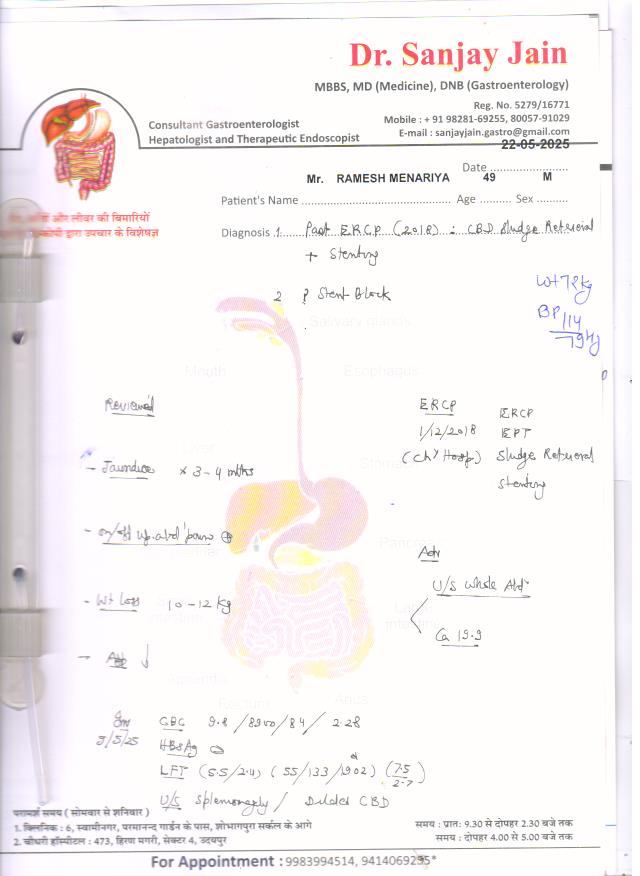 Dr. Sanjay Jain
MBBS, MD (Medicine), DNB (Gastroenterology)
Reg. No. 5279/16771
Mobile : + 91 98281-69255, 80057-91029
E-mail : sanjayjain.gastro@gmail.com
Consultant Gastroenterologist
Hepatologist and Therapeutic Endoscopist
22-05-2025
Date
Mr. RAMESH MENARIYA 49 M
Patient's Name Age Sex
और लीवर की बिमारियों
द्वारा उपचार के विशेषज्ञ
Diagnosis 1 Past ERCP (2018) : CBD Sludge Retrieval
+ Stenting
2 ? Stent Block
Wt 72 kg
BP 114
Salivary glands
Mouth Esophagus
Reviewed
ERCP
1/12/2018
ERCP
EPT
Sludge Retrieval
Stenting
- Jaundice x 3-4 mths
- on/off up. abd pain
Adv
U/S Whole Abd
Ca 19.9
- Wt loss 10-12 kg
Rectum Anus
9/5/25
CBC 9.8 / 8900 / 84 / 2.28
HBsAg
LFT (5.5/2.4) (55/133/1902) (7.5/2.7)
U/S Splenomegaly / Dilated CBD
परामर्श समय ( सोमवार से शनिवार )
1. क्लिनिक : 6, स्वामीनगर, परमानन्द गार्डन के पास, शोभागपुरा सर्कल के आगे
समय : प्रात: 9.30 से दोपहर 2.30 बजे तक
2. चौधरी हॉस्पीटल : 473, हिरण मगरी, सेक्टर 4, उदयपुर
समय : दोपहर 4.00 से 5.00 बजे तक
For Appointment : 9983994514, 9414069235*